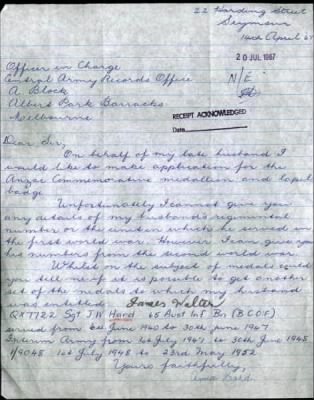 22 Harding Street
Seymour
14th April 67
20 JUL 1967
Officer in Charge
Central Army Records Office
N/E
A Block
Albert Park Barracks
Melbourne
RECEIPT ACKNOWLEDGED
Date
Dear Sir,
On behalf of my late husband I
would like to make application for the
Anzac Commemorative medallion and lapel
badge
Unfortunately I cannot give you
any details of my husband's regimental
number or the unit in which he served in
the first world war. However I can give you
his numbers from the second world war.
Whilst on the subject of medals could
you tell me if it is possible to get another
set of the medals to which my husband
was entitled
James Walter
QX7722 Sgt J W Hard 65 Aust Inf Bn (BCOF)
served from June 1940 to 30th June 1947
Interim Army from 1st July 1947 to 30th June 1948
1/9048 1st July 1948 to 23rd May 1952
Yours faithfully,